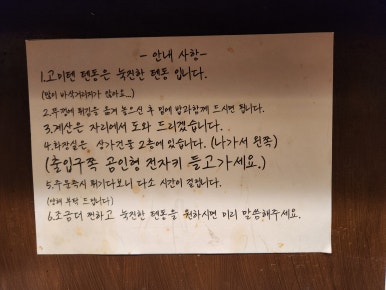 - 안내 사항-
1.고이텐 텐동은 눅진한 텐동 입니다.
(많이 바삭거리지가 않아요...)
2.뚜껑에 튀김을 옮겨 놓으신 후 밥과함께 드시면 됩니다.
3.계산은 자리에서 도와 드리겠습니다.
4.화장실은, 상가건물 2층에 있습니다. (나가서 왼쪽)
(출입구쪽 곰인형 전자키 들고가세요.)
5.주문즉시 튀기다보니 다소 시간이 걸립니다.
(양해 부탁 드립니다)
6.조금더 찐하고 눅진한 텐동을 원하시면 미리 말씀해주세요.